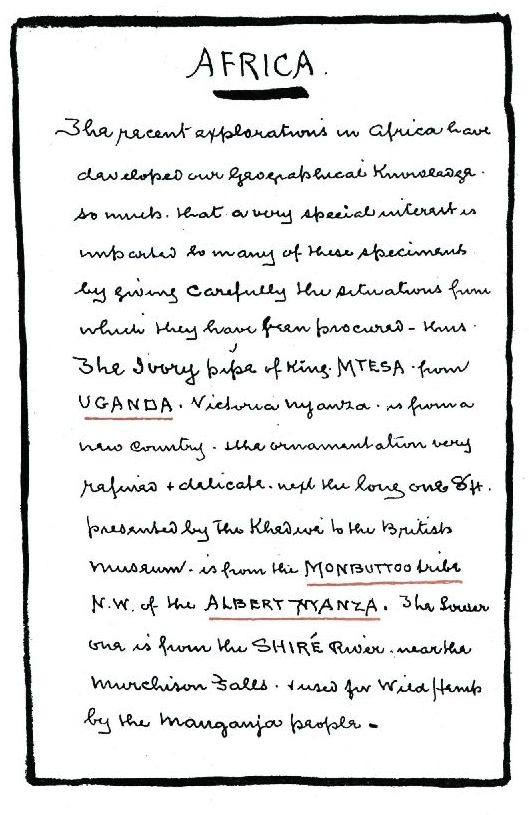 AFRICA.
The recent explorations in Africa have
developed our Geographical Knowledge.
so much. that a very special interest is
imparted to many of these specimens
by giving carefully the situations from
which they have been procured - thus.
The Ivory pipe of King MTESA from
UGANDA. Victoria Nyanza. is from a
new country. the ornamentation very
refined + delicate. next the long one 8 ft.
presented by The Khedive to the British
Museum. is from the MONBUTTOO tribe
N.W. of the ALBERT NYANZA. The Lower
one is from the SHIRÉ River. near the
Murchison Falls. + used for Wild Hemp
by the Manganja people -